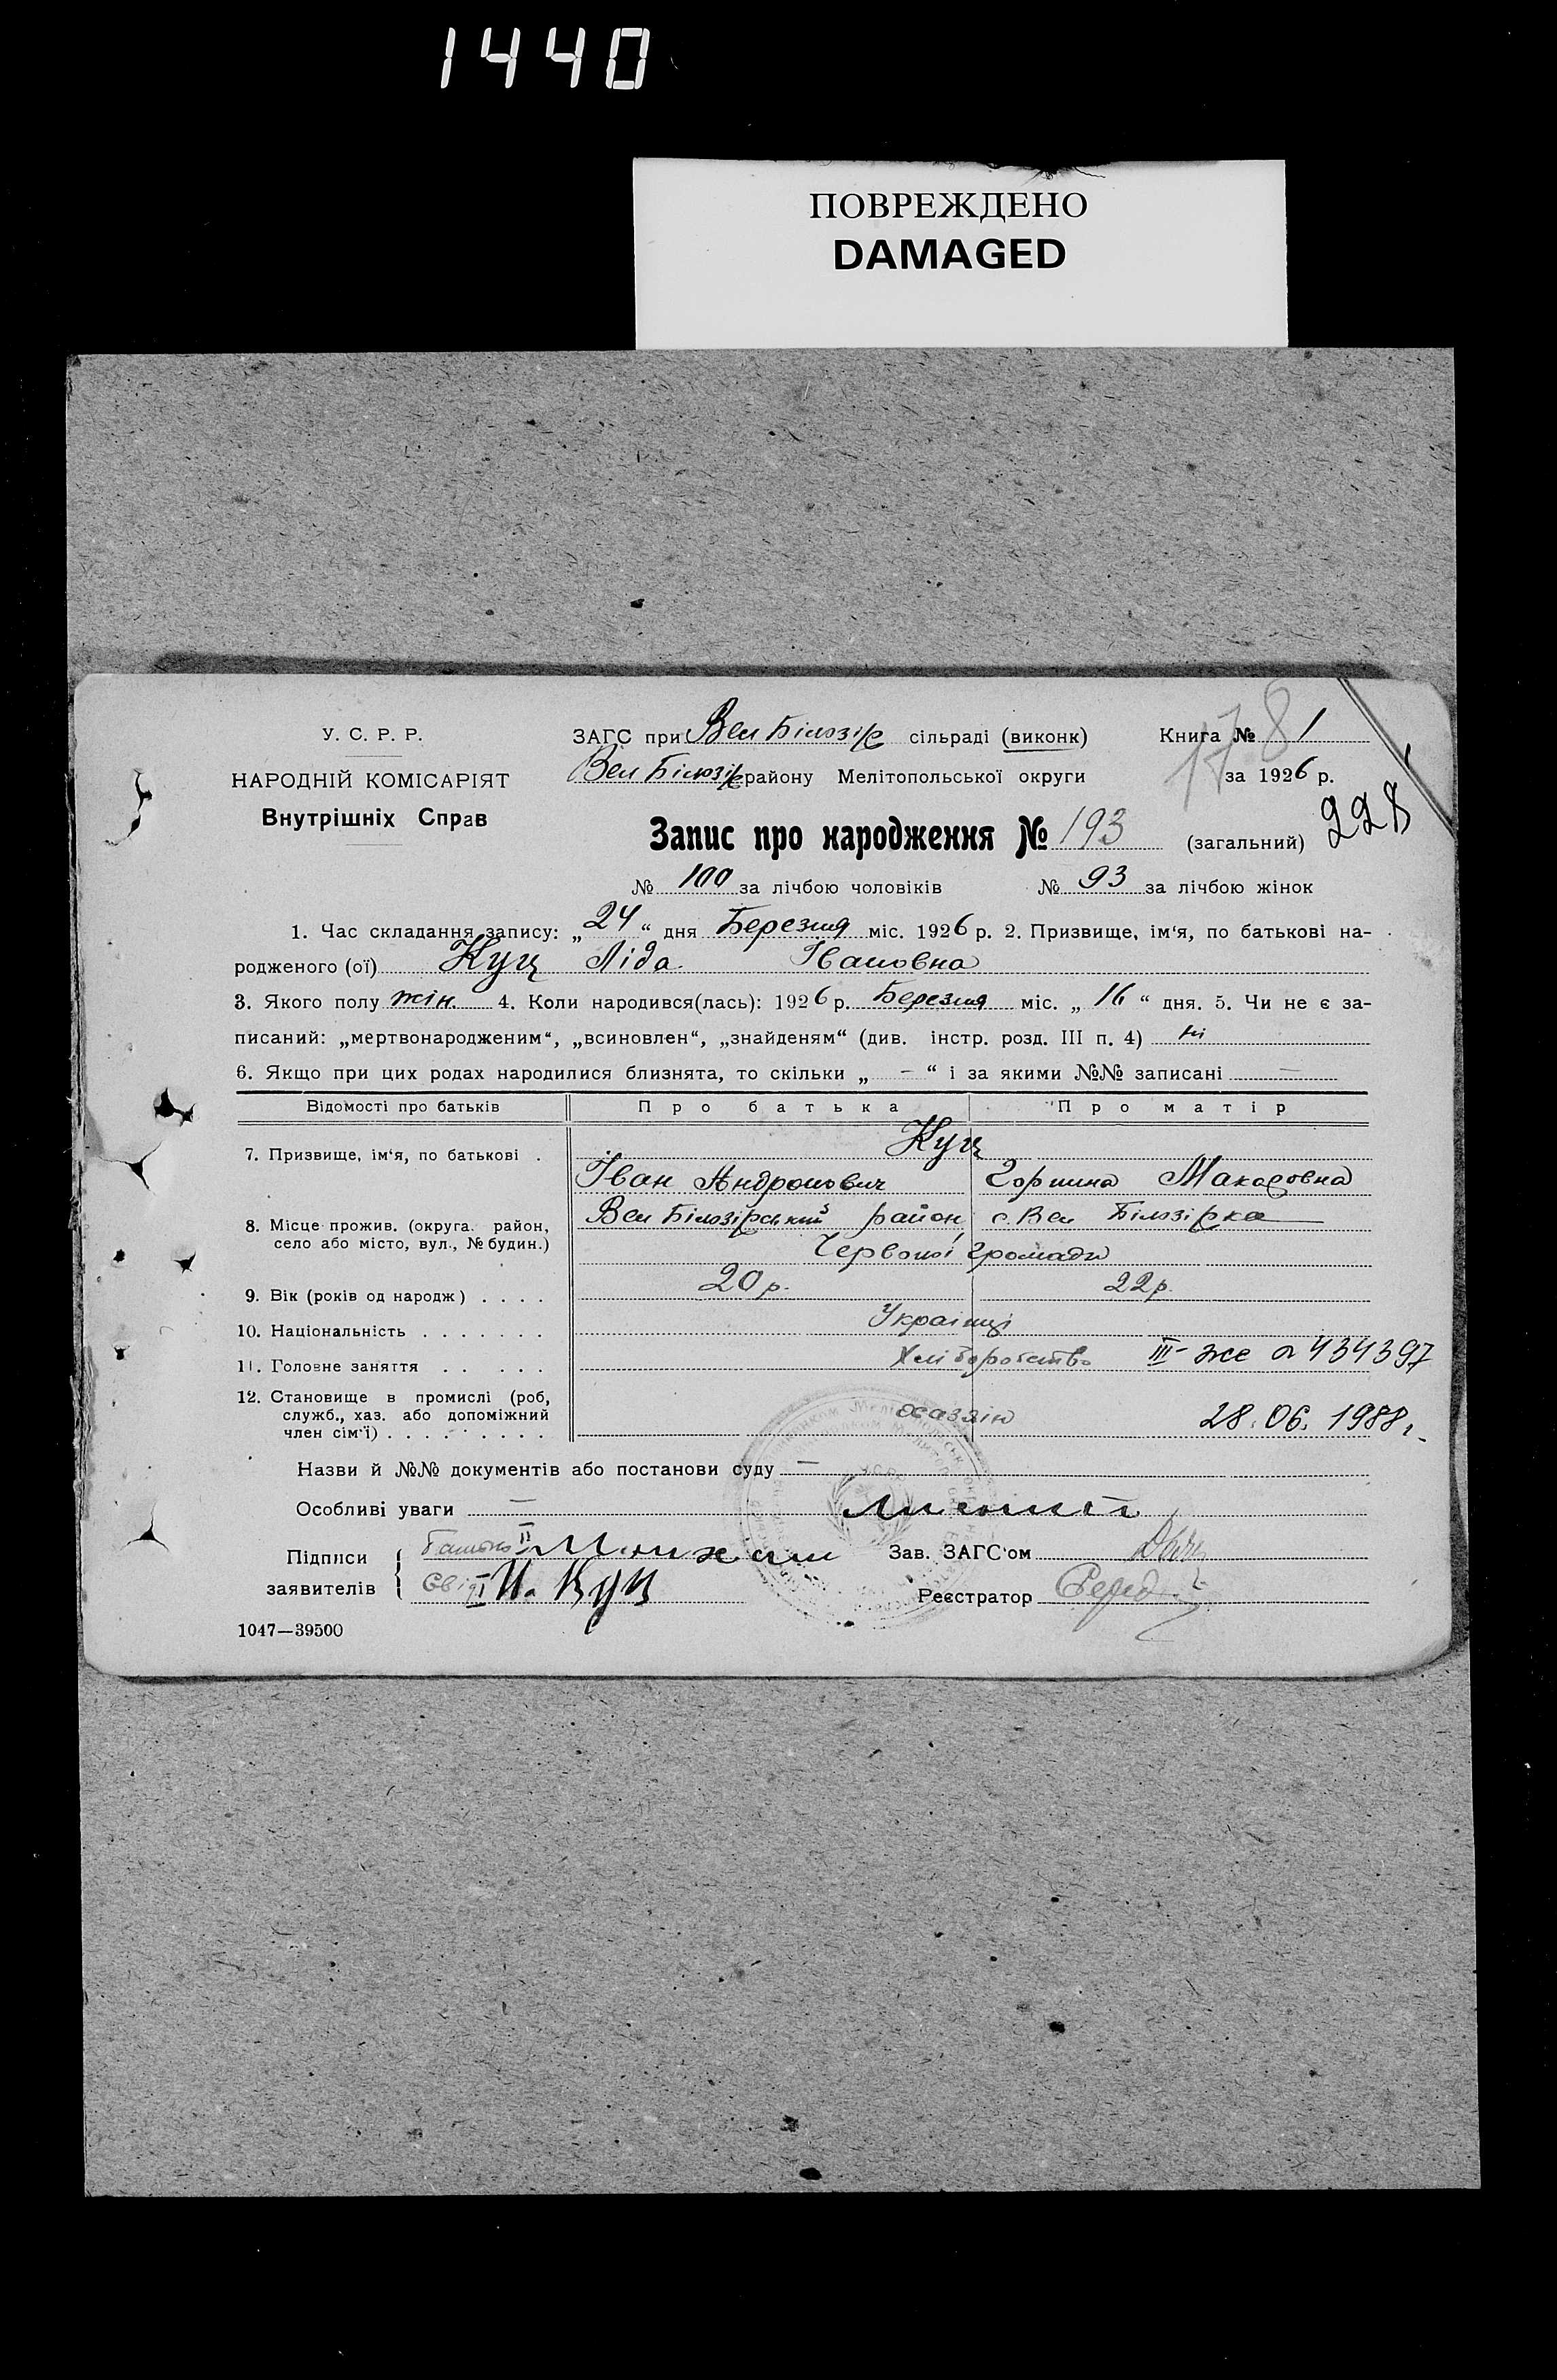 1440
ПОВРЕЖДЕНО
DAMAGED
У. С. Р. Р.
НАРОДНІЙ КОМІСАРІЯТ
Внутрішніх Справ
ЗАГС при Вел Білозір сільраді (виконк)
Книга № 1
178
Вел Білозір району Мелітопольської округи
за 1926 р.
Запис про народження № 193 (загальний) 228
№ 100 за лічбою чоловіків № 93 за лічбою жінок
1. Час складання запису: „24“ дня Березня міс. 1926 р. 2. Призвище, ім‘я, по батькові на-
родженого (ої) Куц Ліда Івановна
3. Якого полу жін. 4. Коли народився(лась): 1926 р. Березня міс. „16“ дня. 5. Чи не є за-
писаний: „мертвонародженим“, „всиновлен“, „знайденям“ (див. інстр. розд. III п. 4) ні
6. Якщо при цих родах народилися близнята, то скільки „ – “ і за якими №№ записані —
Відомості про батьків Про батька Про матір
7. Призвище, ім‘я, по батькові . Куц
Іван Андронович Макаровна
8. Місце прожив. (округа. район, Вел Білозірський район, с. Вел Білозірка
село або місто, вул., № будин.) Червоної громади
9. Вік (років од народж) . . . . 20 р. 22 р.
10. Національність . . . . . . . Українці
11. Головне заняття . . . . . Хліборобство III-же № 434397
12. Становище в промислі (роб,
служб., хаз. або допоміжний
член сім‘ї) . . . . . . . . . 28.06.1988 г.
Назви й №№ документів або постанови суду —
Особливі уваги —
Підписи
заявителів
батько II
Свід I И. Куц
Зав. ЗАГС‘ом
Реєстратор
1047—39500